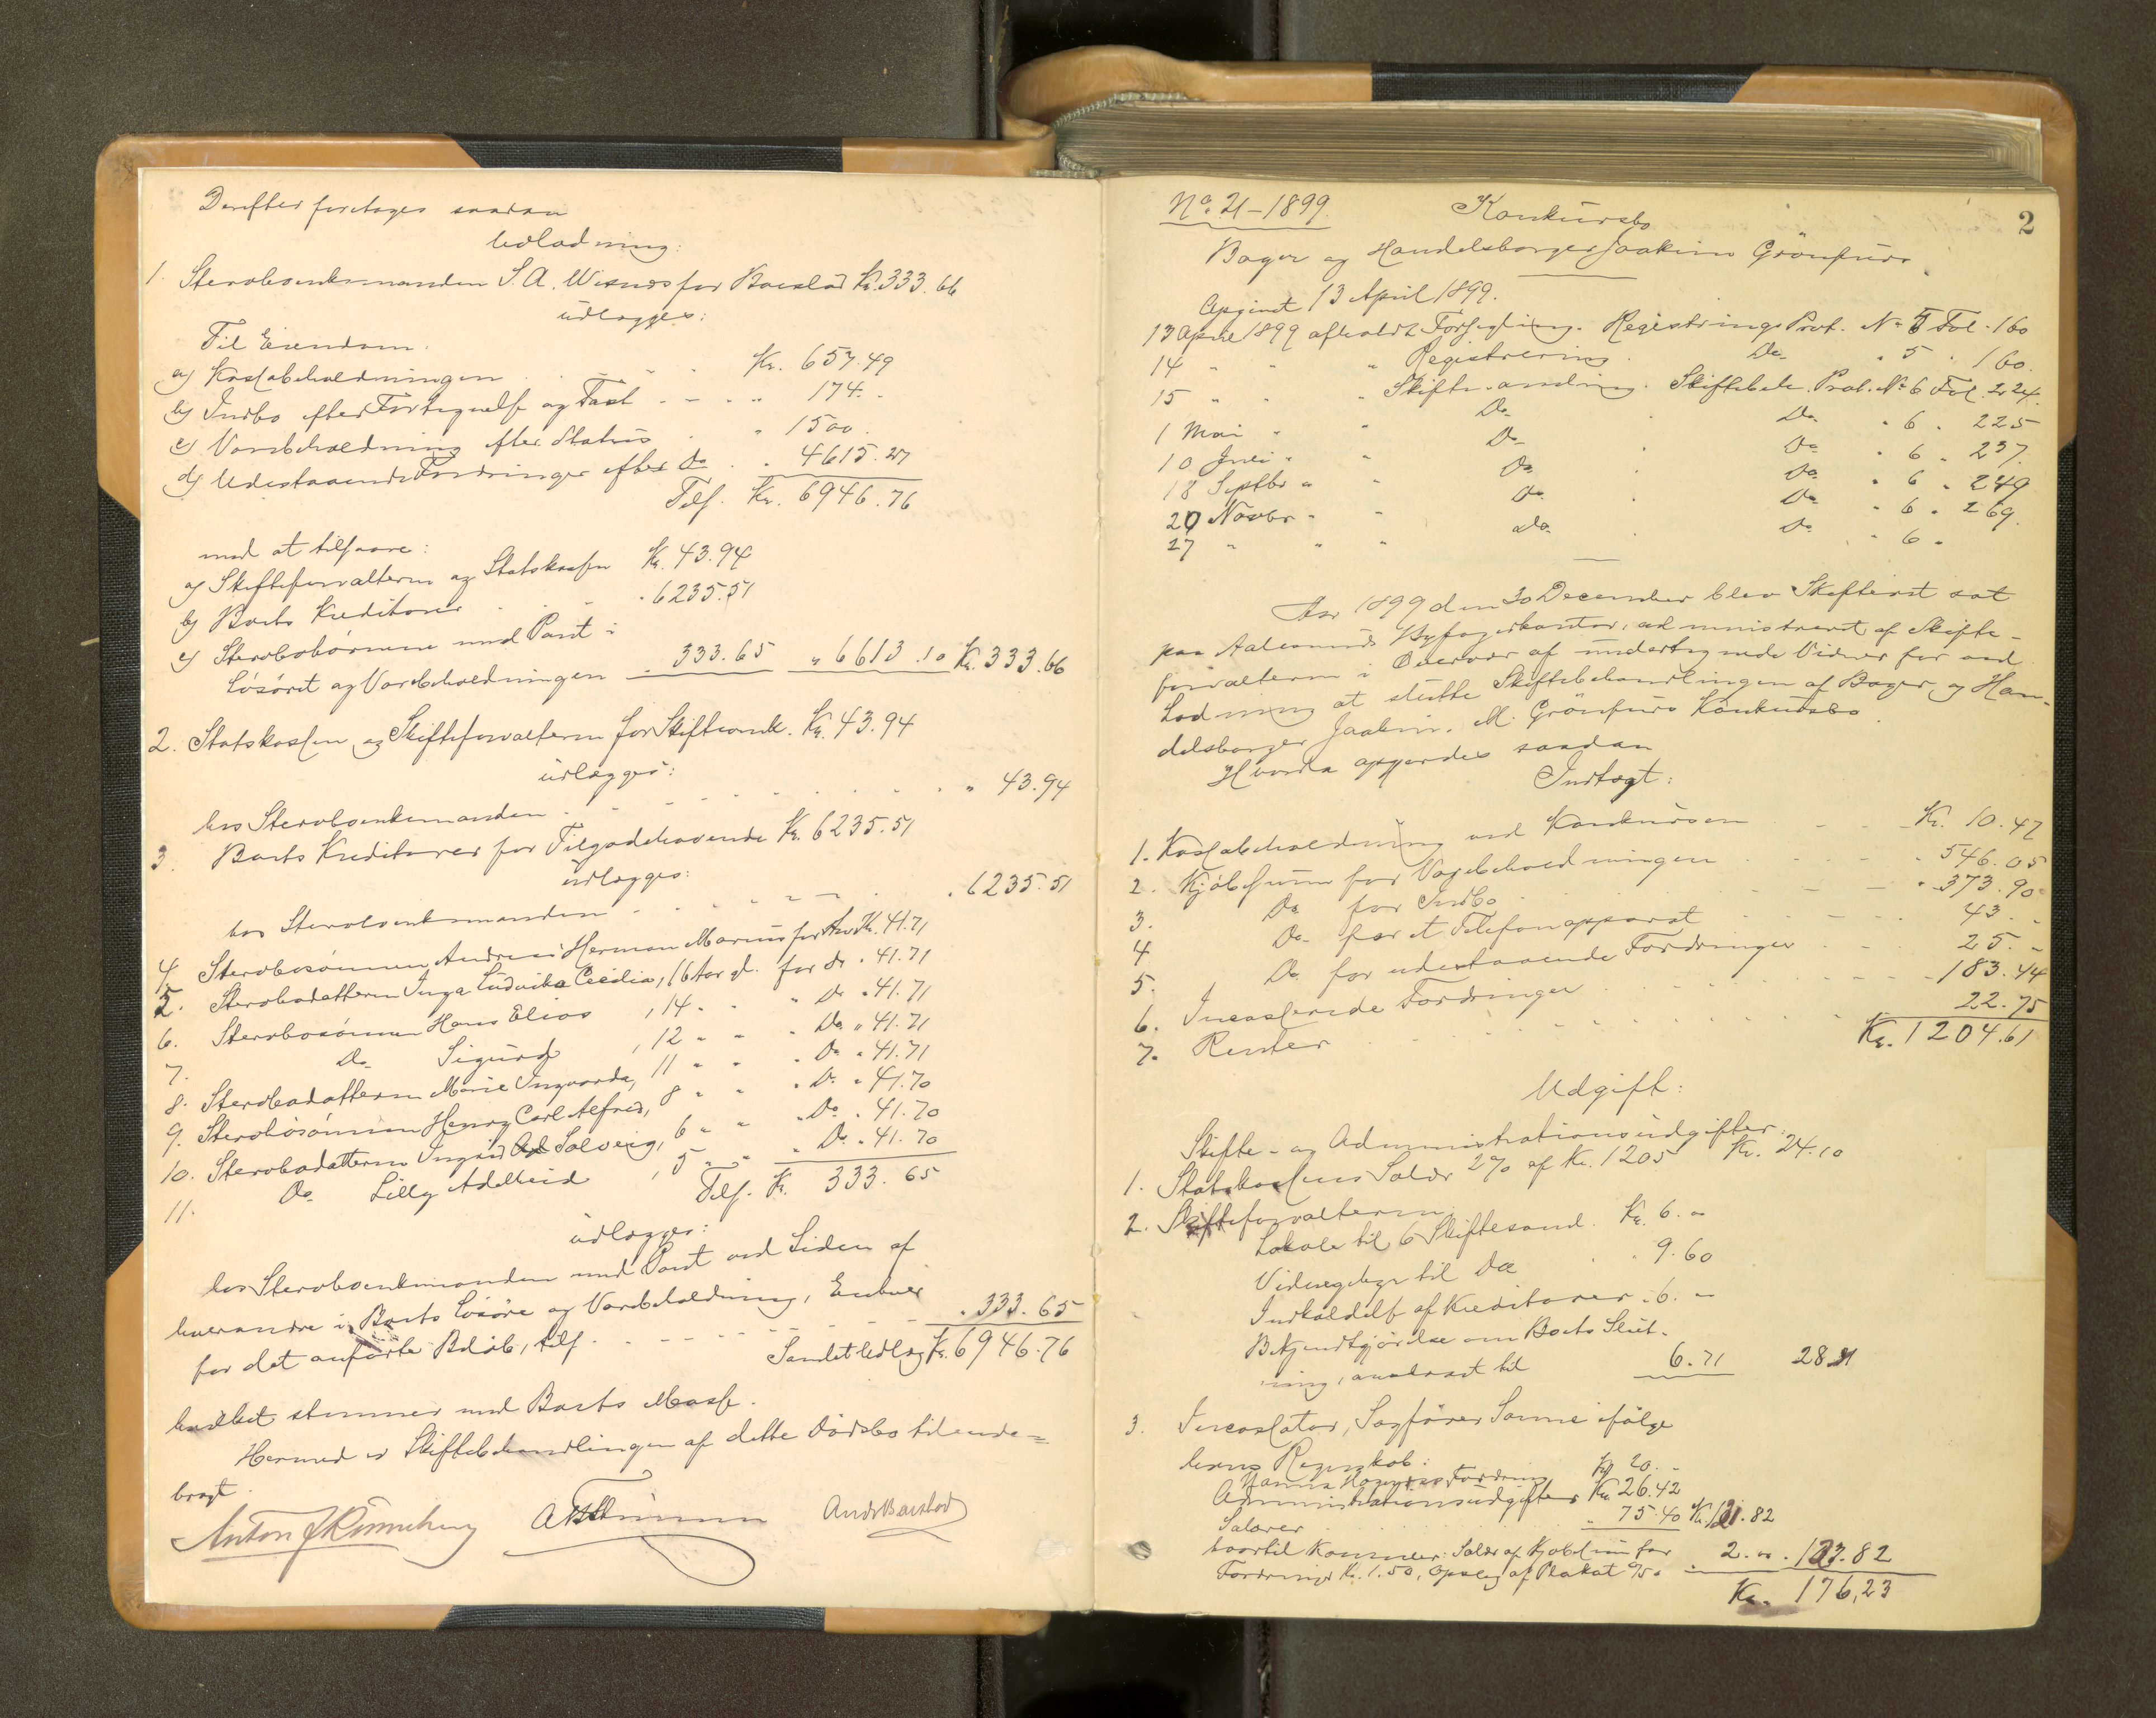 Derefter foretoges saadan
Udlodning:
1. Stervboenkemanden S. A. Wisnes for Boeslod Kr. 333.66
udlægges:
Til Eiendom.
a) Kassabeholdningen Kr. 657.49
b) Indbo efter Fortegnelse og Taxt - - - „ 174. -
c) Varebeholdning efter Status „ 1500.
d) Udestaaende Fordringer efter Do „ 4615.27
Tils. Kr. 6946.76
mod at tilsvare:
a) Skifteforvalteren og Statskassen Kr. 43.94
b) Boets Kreditorer - 6235.51
c) Stervbobörnene mod Pant i
Lösöret og Varebeholdningen „ 333.65 „ 6613.10 Kr. 333.66
2. Statskassen og Skifteforvalteren for Skifteomk. Kr. 43.94
udlægges:
hos Stervboenkemanden - - - „ 43.94
3. Boets Kreditorer for Tilgodehavende Kr. 6235.51
udlægges:
hos Stervboenkemanden - - - „ 6235.51
4. Stervbosønnen Andreas Herman Marius for Arv Kr. 41.71
5. Stervbodatteren Inga Ludvika Cecilia, 16 Aar gl. for do „ 41.71
6. Stervbosønnen Hans Elias , 14 „ „ „ Do „ 41.71
7. Do Sigurd , 12 „ „ „ Do „ 41.71
8. Stervbodatteren Marie Ingvarda, 11 „ „ „ Do „ 41.71
9. Stervbosønnen Henry Carl Alfred, 8 „ „ „ Do „ 41.70
10. Stervbodatteren Ingrid Solveig, 6 „ „ „ Do „ 41.70
11. Do Lilly Adelheid , 5 „ „ „ Do „ 41.70
Tils. Kr. 333.65
udlægges:
hos Stervboenkemanden mod Pant ved Siden af
hverandre i Boets Lösöre og Varebeholdning, Enhver
for det anførte Beløb, tils. - - - „ 333.65
Samlet Udlæg Kr. 6946.76
hvilket stemmer med Boets Masse.
Hermed er Skiftebehandlingen af dette Dødsbo tilende=
bragt.
Anton J Rønneberg And Baxstad
No. 21 - 1899. Konkursbo 2
Bager og Handelsborger Joakim Grönfurs
Begyndt 13 April 1899.
13 April 1899 afholdt Forsegling. Registrerings Prot. No 5 Fol. 160
14 „ „ „ Registrering. Do „ 5 „ 160.
15 „ „ „ Skiftesamling. Skiftebeh. Prot. No 6 Fol. 224.
1 Mai „ „ Do Do „ 6 „ 225
10 Juli „ „ Do Do „ 6 „ 237.
18 Septbr „ „ Do Do „ 6 „ 249
20 Novbr „ „ Do Do „ 6 „ 269.
27 „ „ „ Do Do „ 6 „
Aar 1899 den 30 December blev Skifteret sat
paa Aalesunds Byfogedkontor, administreret af Skifte-
forvalteren i Overvær af undertegnede Vidner for ved
Lodning at slutte Skiftebehandlingen af Bager og Han-
delsborger Joakim M. Grönfurs Konkursbo.
Hvorda opgjordes saadan
Indtægt:
1. Kassabeholdning ved Konkursen - - - Kr. 10.47
2. Kjöbesum for Varebeholdningen „ 546.05
3. Do for Indbo - - - „ 373.90
4 Do for et Telefonapparat 43. -
5. Do for udestaaende Fordringer 25. -
6. Incasserede Fordringer - - - 183.44
7. Renter 22.75
Kr. 1204.61
Udgift:
Skifte- og Administrationsudgifter:
1. Statskassens Salær 2% af Kr. 1205 Kr. 24.10
2. Skifteforvalteren
Lokale til 6 Skiftesaml. Kr. 6. -
Vidnegebyr til Do „ 9.60
Indkaldelse af Kreditorer „ 6. -
Bekjendtgjörelse om Boets Slut-
ning, anslaaet til 6.71 28.31
3. Incassator, Sagfører Sanne ifølge
hans Regnskab:
Fordring Kr. 20. -
Administrationsudgifter Kr. 26.42
Salærer „ 75.40 Kr. 121.82
hvortil kommer: Salær af Kjøbesum for
Fordringer Kr. 1.50, Opslag af Plakat Kr. 0.50 „ 2. - „ 123.82
Kr. 176,23